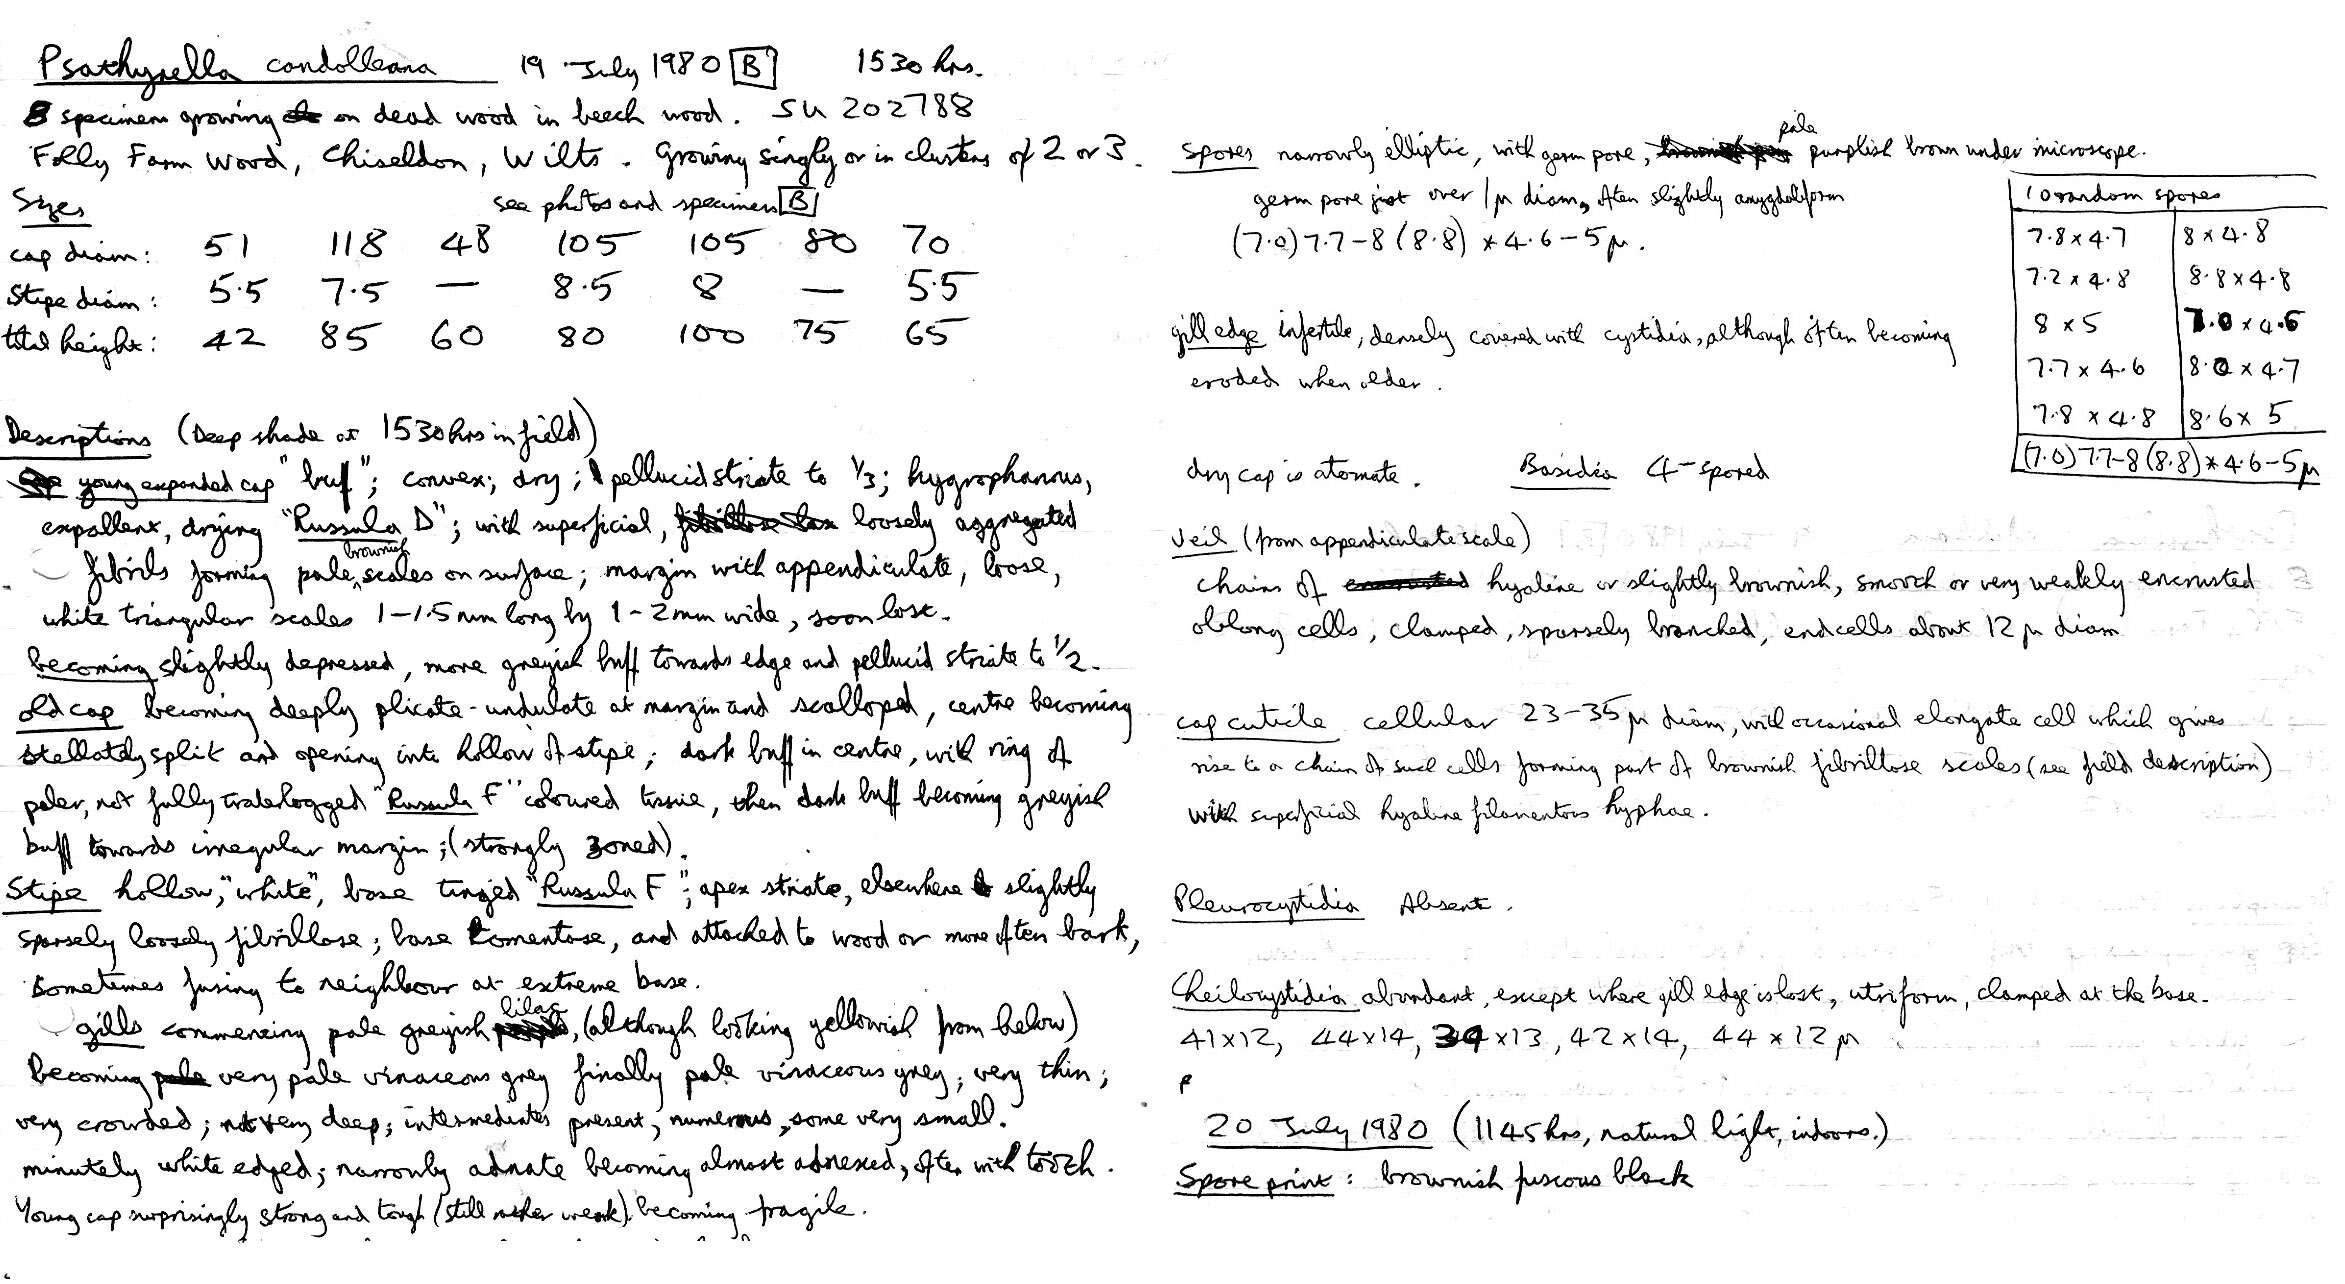 Psathyrella candolleana 19 July 1980 [B] 1530 hrs.
8 specimens growing on dead wood in beech wood. SU 202788
Folly Farm Wood, Chiseldon, Wilts. Growing singly or in clusters of 2 or 3.
Sizes see photos and specimens [B]
cap diam: 51 118 48 105 105 80 70
Stipe diam: 5.5 7.5 — 8.5 8 — 5.5
total height: 42 85 60 80 100 75 65
Descriptions (Deep shade at 1530 hrs in field)
young expanded cap "buff"; convex; dry; pellucid striate to 1/3; hygrophanous,
expallent, drying "Russula D"; with superficial, loosely aggregated
fibrils forming pale brownish scales on surface; margin with appendiculate, loose,
white triangular scales 1-1.5mm long by 1-2mm wide, soon lost.
becoming slightly depressed, more greyish buff towards edge and pellucid striate to 1/2.
old cap becoming deeply plicate-undulate at margin and scalloped, centre becoming
stellately split and opening into hollow of stipe; dark buff in centre, with ring of
paler, not fully waterlogged "Russula F" coloured tissue, then dark buff becoming greyish
buff towards irregular margin; (strongly zoned).
Stipe hollow, "white", base tinged "Russula F"; apex striate, elsewhere slightly
sparsely loosely fibrillose; base tomentose, and attached to wood or more often bark,
sometimes fusing to neighbour at extreme base.
gills commencing pale greyish lilac, (although looking yellowish from below)
becoming very pale vinaceous grey finally pale vinaceous grey; very thin;
very crowded; not very deep; intermediates present, numerous, some very small.
minutely white edged; narrowly adnate becoming almost adnexed, often with tooth.
Young cap surprisingly strong and tough (still rather weak) becoming fragile.
Spores narrowly elliptic, with germ pore, pale purplish brown under microscope.
germ pore just over 1µ diam, often slightly amygdaliform
(7.0) 7.7-8 (8.8) x 4.6-5µ.
10 random spores
7.8 x 4.7 8 x 4.8
7.2 x 4.8 8.8 x 4.8
8 x 5 7.0 x 4.6
7.7 x 4.6 8.0 x 4.7
7.8 x 4.8 8.6 x 5
(7.0) 7.7-8 (8.8) x 4.6-5µ
gill edge infertile, densely covered with cystidia, although often becoming
eroded when older.
dry cap is atomate. Basidia 4-spored
Veil (from appendiculate scale)
chains of hyaline or slightly brownish, smooth or very weakly encrusted
oblong cells, clamped, sparsely branched, endcells about 12µ diam
cap cuticle cellular 23-35µ diam, with occasional elongate cell which gives
rise to a chain of such cells forming part of brownish fibrillose scales (see field description)
with superficial hyaline filamentous hyphae.
Pleurocystidia Absent.
Cheilocystidia abundant, except where gill edge is lost, utriform, clamped at the base.
41x12, 44x14, 34x13, 42x14, 44x12µ
20 July 1980 (1145 hrs, natural light, indoors.)
Spore print: brownish fuscous black